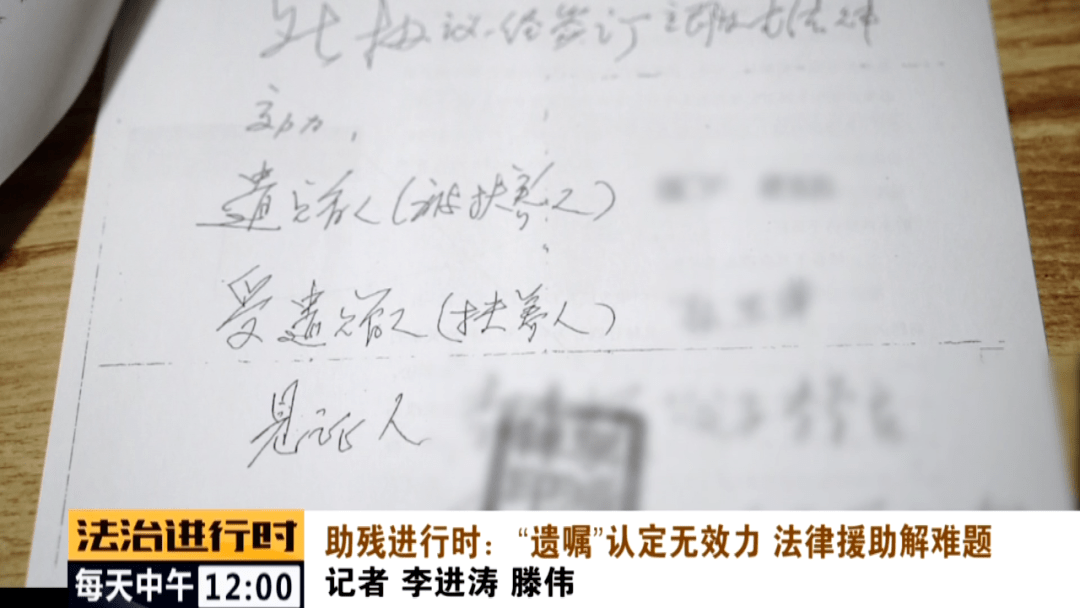 此协议经签订立即的法律
效力，
遗赠人（被扶养人）
受遗赠人（扶养人）
见证人
法治进行时
每天中午 12:00
助残进行时：“遗嘱”认定无效力 法律援助解难题
记者 李进涛 滕伟